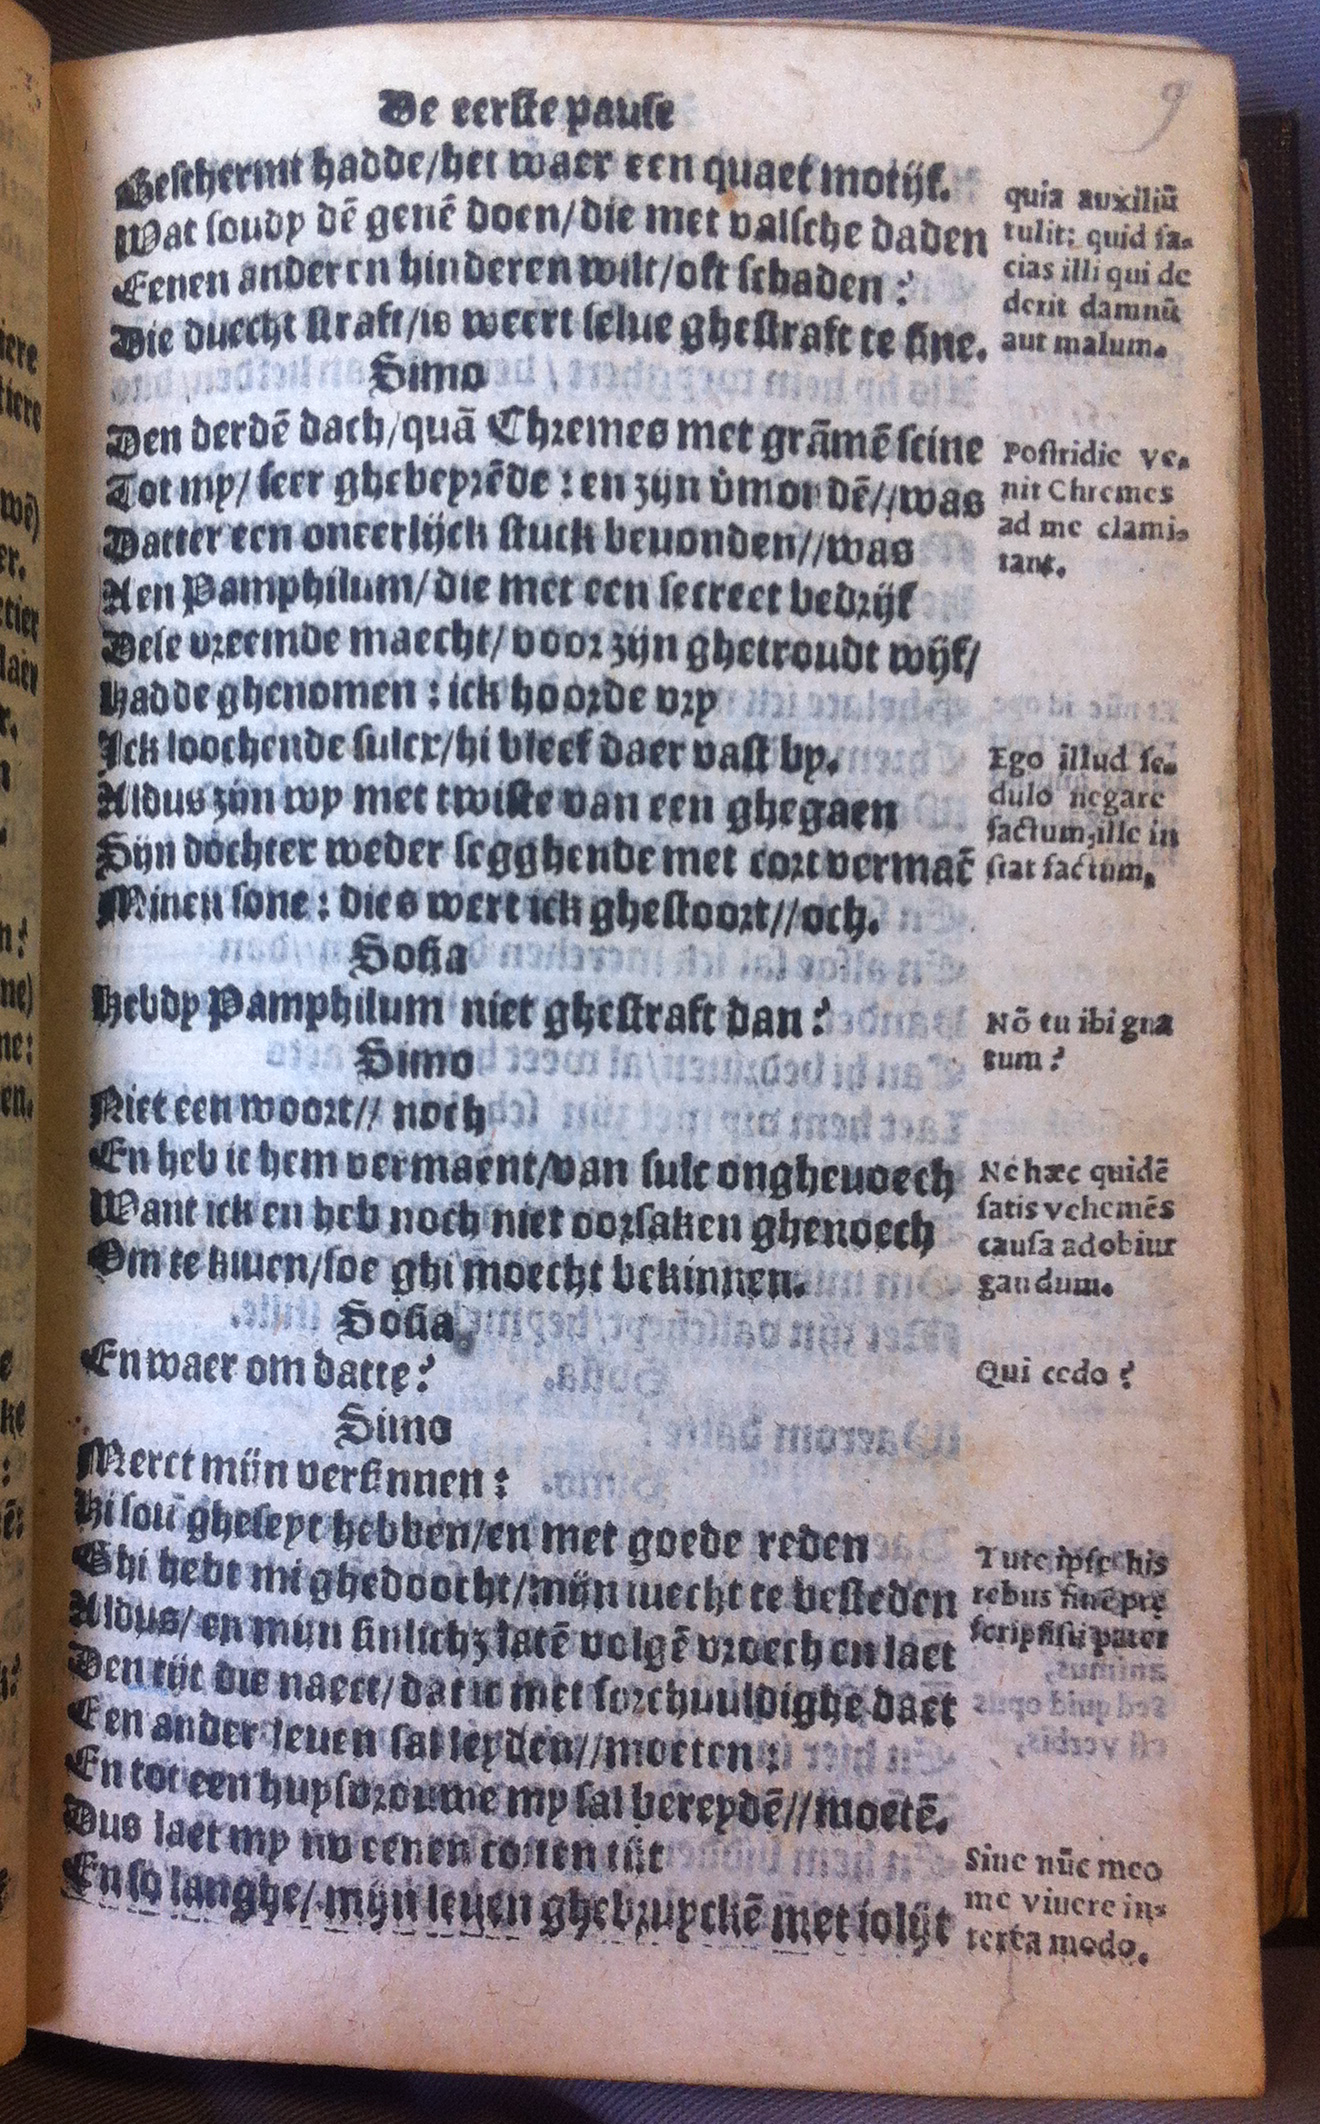 De eerste pause
9
Beschermt hadde/het waer een quaet motijf.
Wat soudy dē genē doen/die met valsche daden
Eenen anderen hinderen wilt/oft schaden?
Die duecht straft/is weert selue ghestraft te sine.
quia auxiliū
tulit: quid fa-
cias illi qui de
derit damnū
aut malum.
Simo
Den derdē dach/quā Chremes met grāmē scine
Tot my/ seer ghebeyrēde: en zijn v̄mondē//was
Datter een oneerlijck stuck beuonden//was
Aen Pamphilum/die met een secreet bedrijf
Dese vreemde maecht/voor zijn ghetroudt wijf/
Hadde ghenomen: ick hoorde vry
Postridie ve-
nit Chremes
ad me clami-
tant.
Ick loochende sulcx/hi bleef daer vast by.
Aldus zijn wy met twiste van een ghegaen
Sijn dochter weder segghende met cort vermaē
Minen sone: dies wert ick ghestoort//och.
Ego illud se-
dulo negare
factum, ille in
stat factum.
Sosia
Hebdy Pamphilum niet ghestraft dan?
Nō tu ibi gna
tum?
Simo
Niet een woort// noch
En heb ic hem vermaent/van sulc ongheuoech
Want ick en heb noch niet oorsaken ghenoech
Om te kiuen/soe ghi moecht bekinnen.
Ne hæc quidē
satis vehemēs
causa ad obiur
gandum.
Sosia
En waer om datte?
Qui cedo?
Simo
Merct mijn versinnen:
Hi sou gheseyt hebben/en met goede reden
Ghi hebt mi ghedoocht/mijn iuecht te besteden
Aldus/ en mijn sinlichz latē volgē vroech en laet
Den tijt die naect/dat ic met sorchuuldighe daet
Een ander leuen sal leyden//moeten:
En tot een huysvrouwe my sal bereydē//moetē.
Tute ipse his
rebus finē pre
scripsisti pater
Dus laet my nv eenen corten tijt
En so langhe/ mijn leuen ghebruyckē met iolijt
Sine nūc meo
me viuere in-
terea modo.